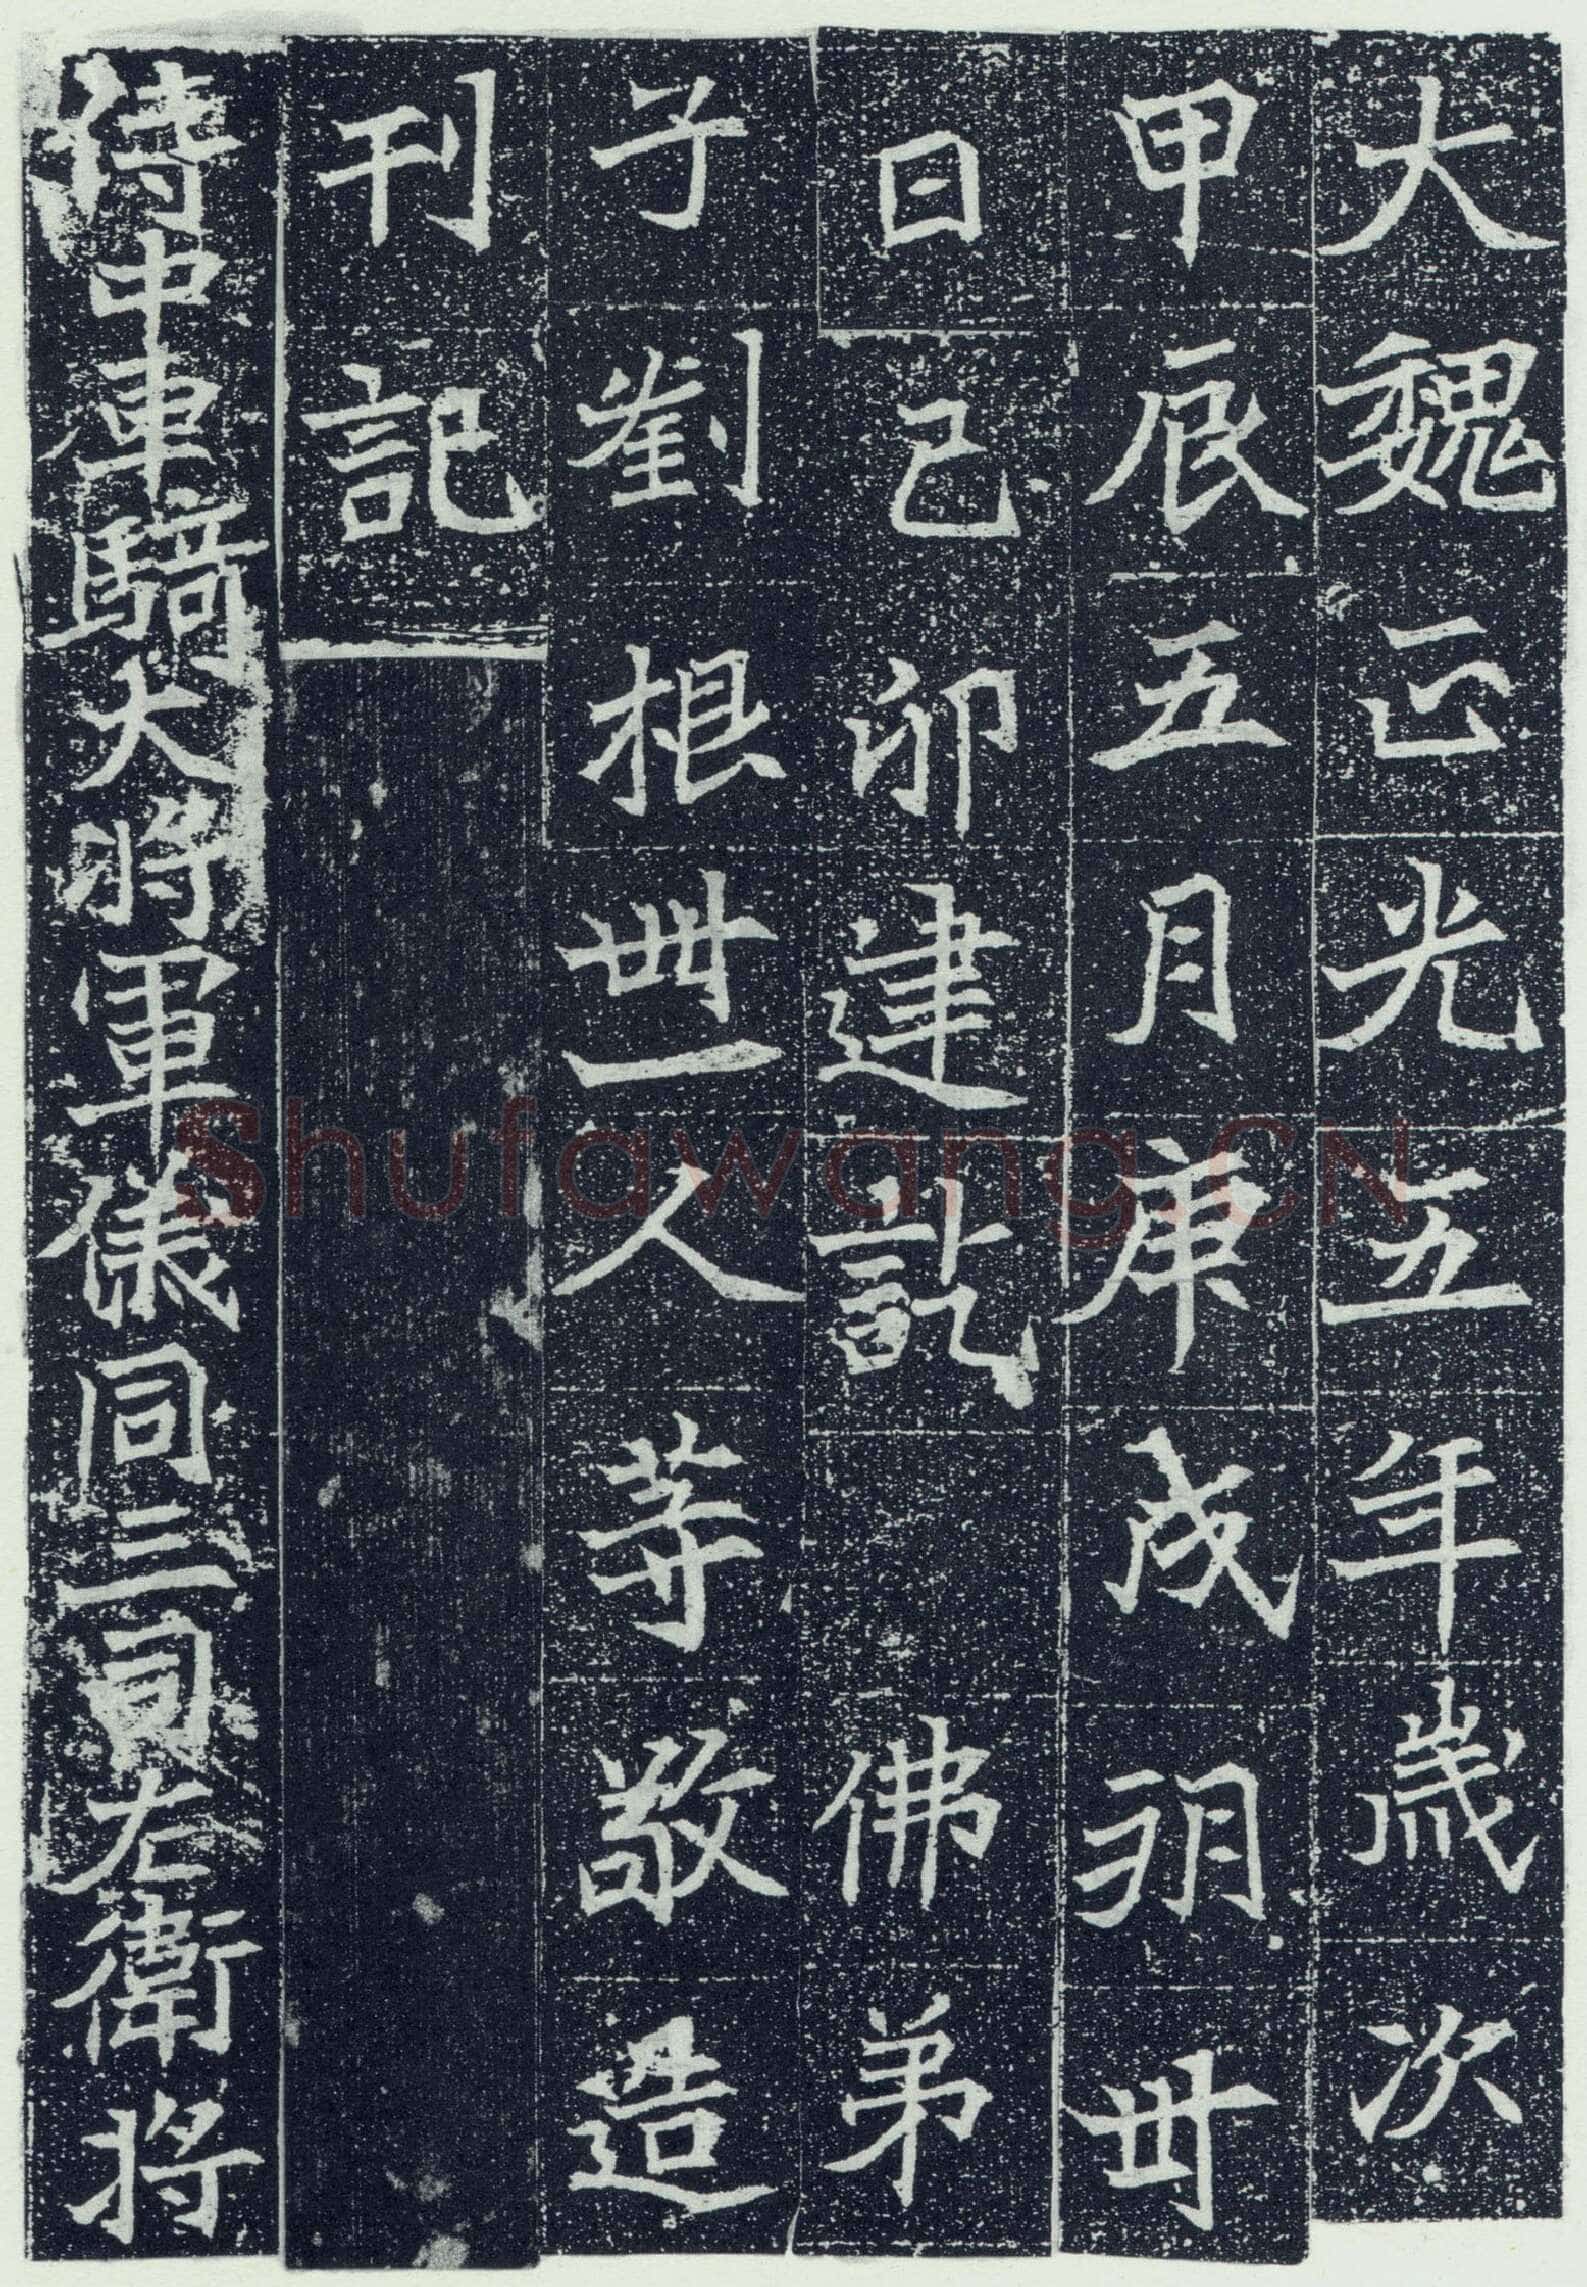 大魏正光五年歲次
甲辰五月庚戌朔卅
日己卯建訖 佛弟
子劉根卌一人等敬造
刊記
侍中車騎大將軍儀同三司右衛將
Shufawang.CN